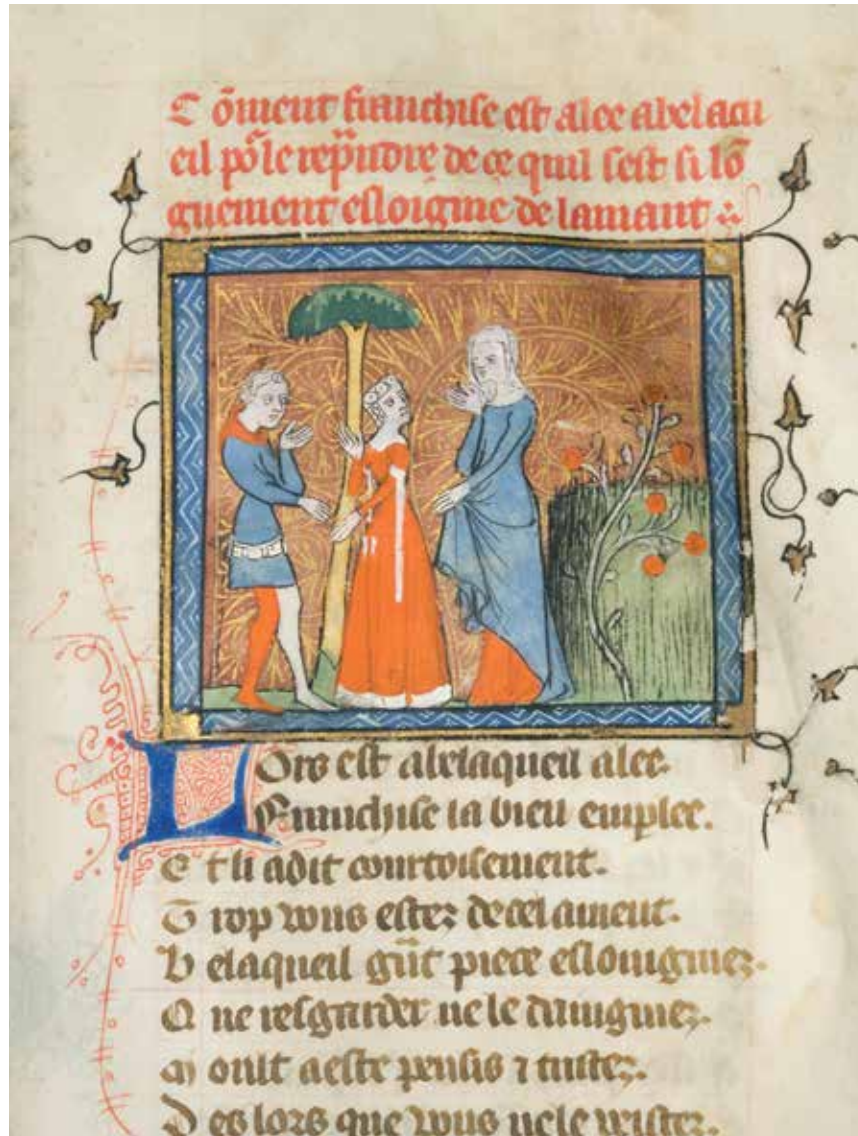 Cõment franchise est alee abelacu
eil põ le rep̃ndre de ce quil sest si lõ
guement esloigine de lamant
Lors est abelaqueil alee.
Franchise la bien emplee.
Et li a dit courtoisement.
Trop vous estez de cel ament.
Belaqueil gñt piece eslouignez.
Q ne resgarder ne le daingniez.
Moult a este pensis ⁊ tristez.
Des lors que vous ne le veistez.